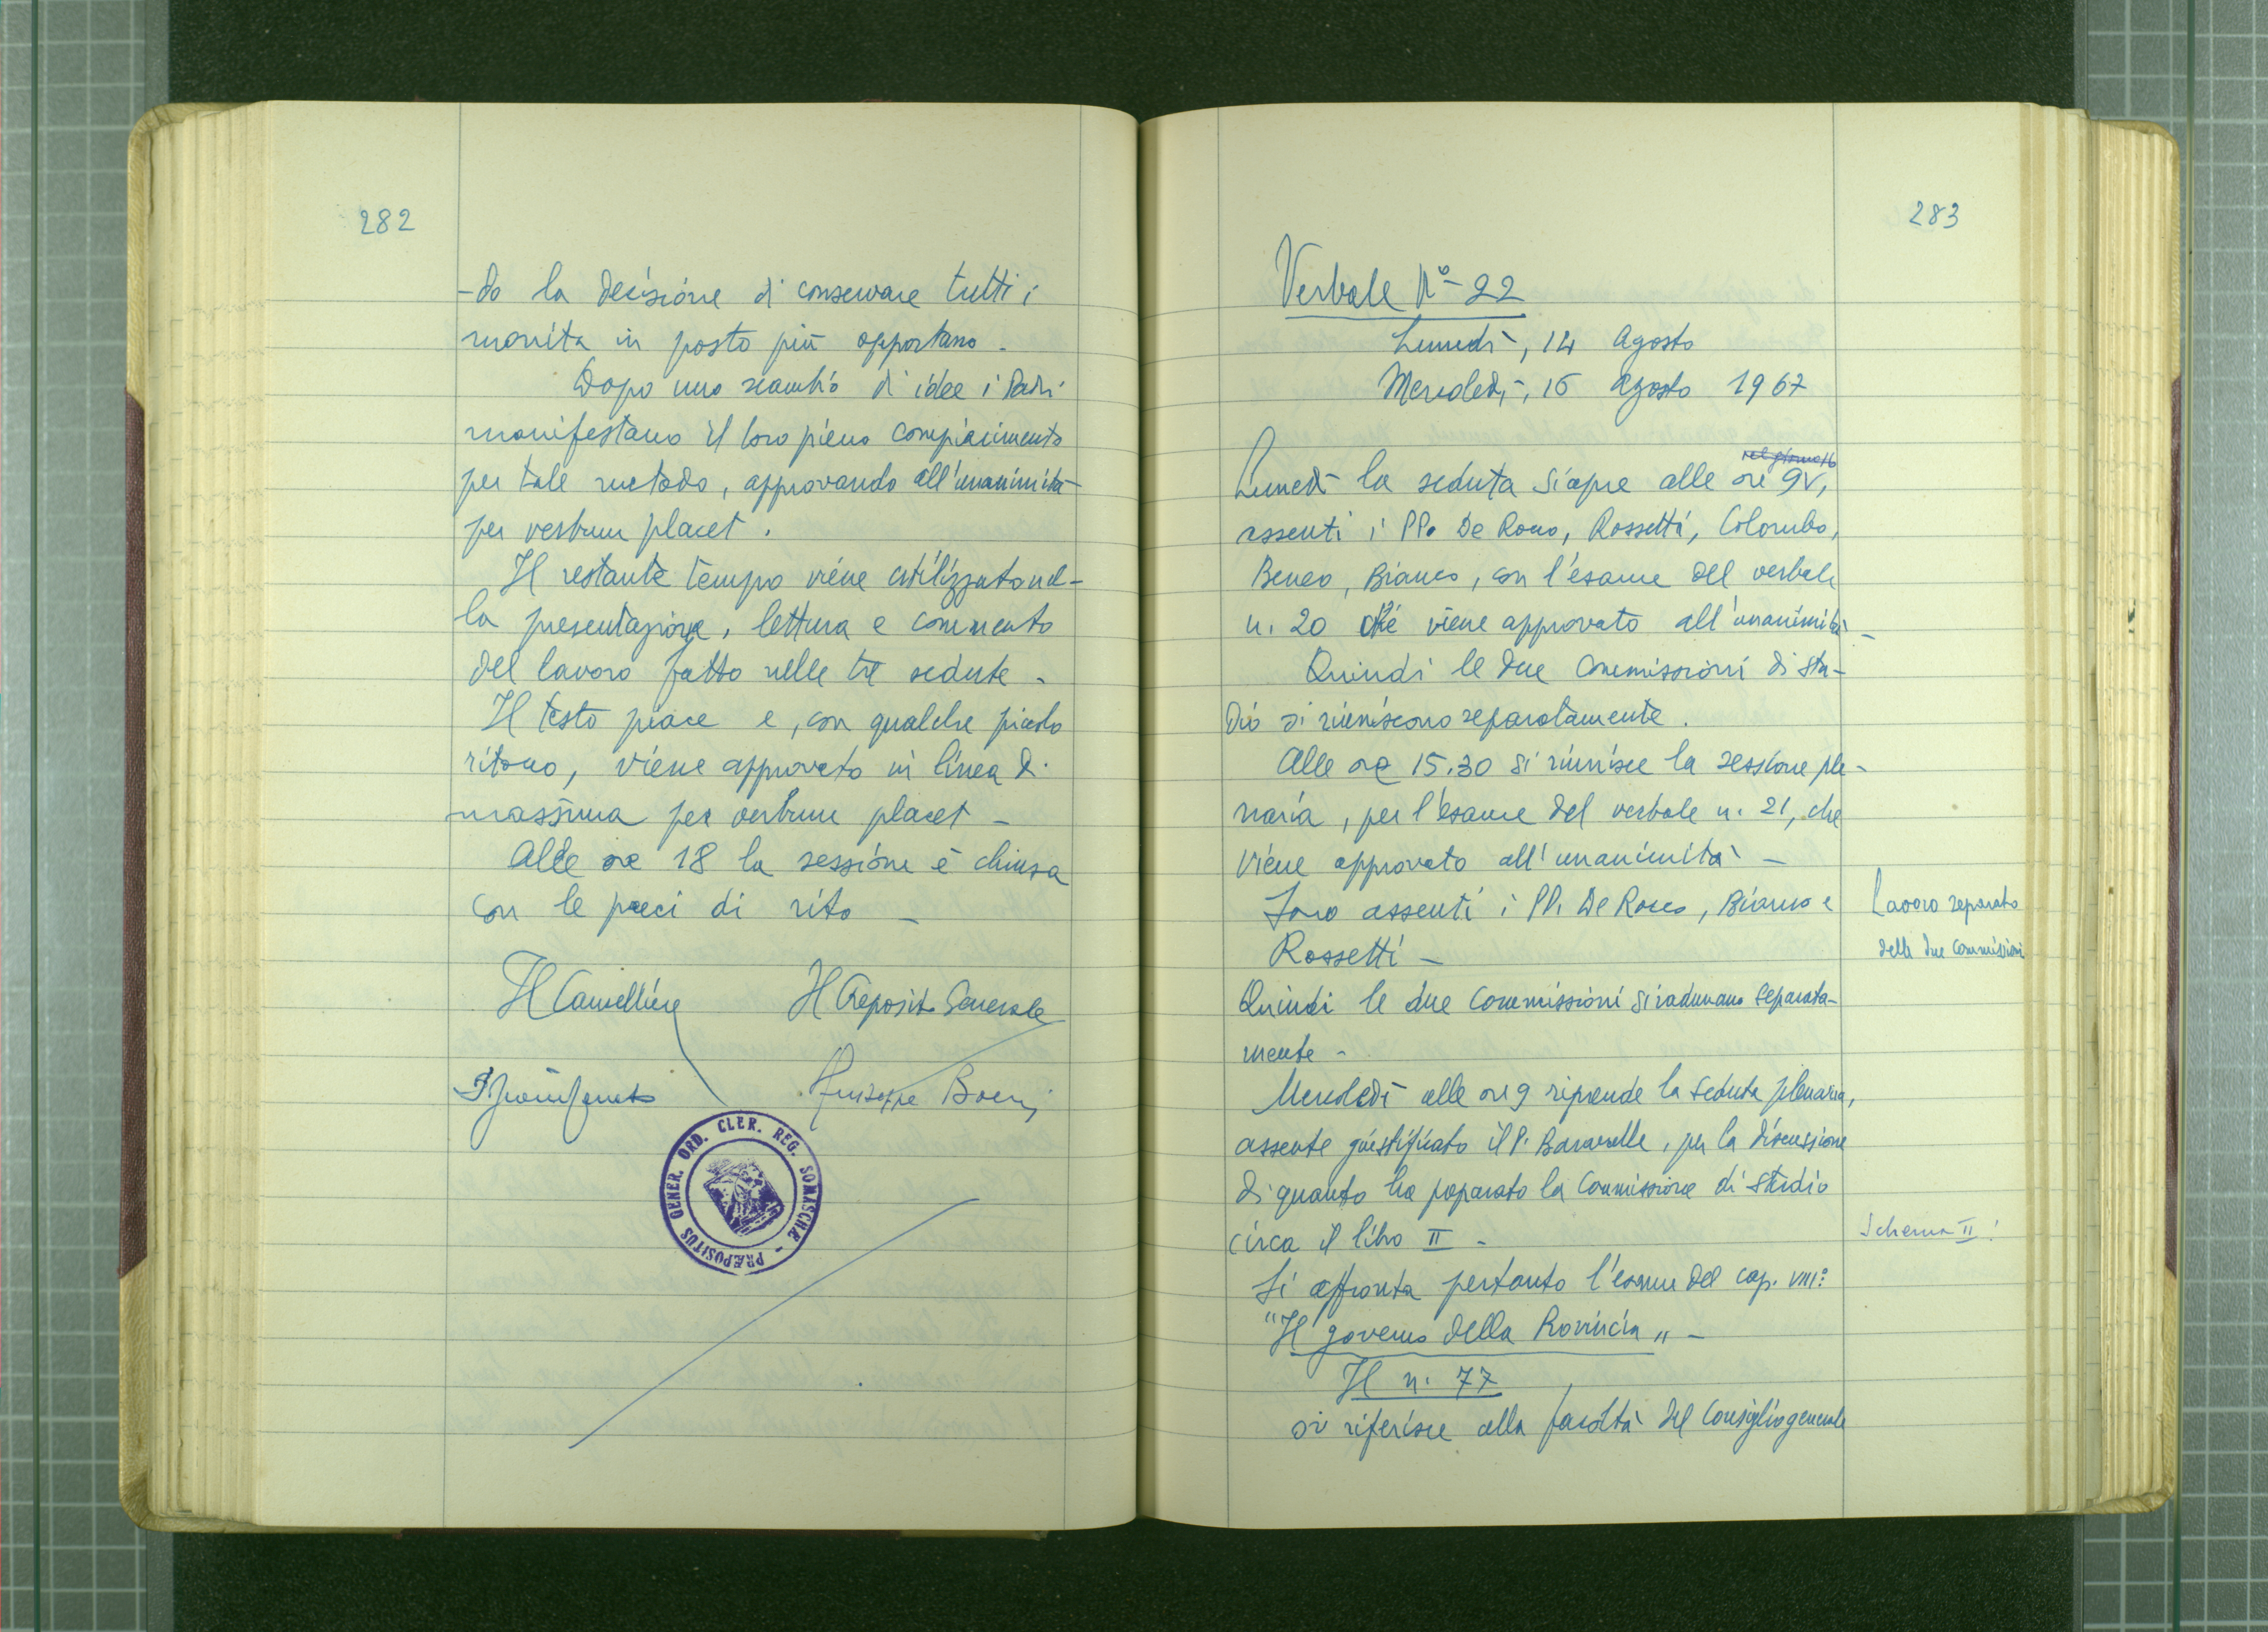 282
-do la decisione di conservare tutti i
monita in posto più opportuno.
Dopo uno scambio di idee i Padri
manifestano il loro pieno compiacimento
per tale metodo, approvando all'unanimità
per verbum placet.
Il restante tempo viene utilizzato nel-
la presentazione, lettura e commento
del lavoro fatto nelle tre sedute -
Il testo piace e, con qualche piccolo
ritocco, viene approvato in linea di
massima per verbum placet -
Alle ore 18 la sessione è chiusa
con le preci di rito -
Il Cancelliere Il Preposito Generale
Giuseppe Boeris
PRÆPOSITUS GENER. ORD. CLER. REG. SOMASCHÆ -
283
Verbale N° - 22
Lunedì, 14 Agosto
Mercoledì, 16 Agosto 1967
nel giorno 16
Lunedì la seduta si apre alle ore 9,
assenti i PP. De Rocco, Rossetti, Colombo,
Beneo, Bianco, con l'esame del verbale
n. 20 che viene approvato all'unanimità -
Quindi le due Commissioni di stu-
dio si riuniscono separatamente.
Alle ore 15.30 si riunisce la sessione ple-
naria, per l'esame del verbale n. 21, che
viene approvato all'unanimità -
Sono assenti i PP. De Rocco, Bianco e
Rossetti -
Lavoro separato
delle due Commissioni
Quindi le due Commissioni si radunano separata-
mente -
Mercoledì alle ore 9 riprende la seduta plenaria,
assente giustificato il P. Bavarelle, per la discussione
di quanto ha preparato la Commissione di studio
circa il libro II -
Schema II!
Si affronta pertanto l'esame del cap. VIII:
"Il governo della Provincia" -
Il n. 77
si riferisce alla facoltà del Consiglio generale